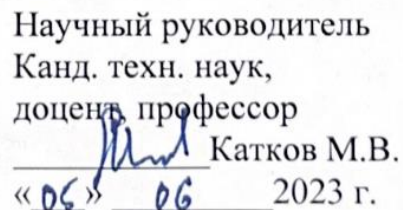 Научный руководитель
Канд. техн. наук,
доцент, профессор
Катков М.В.
« 05 » 06 2023 г.